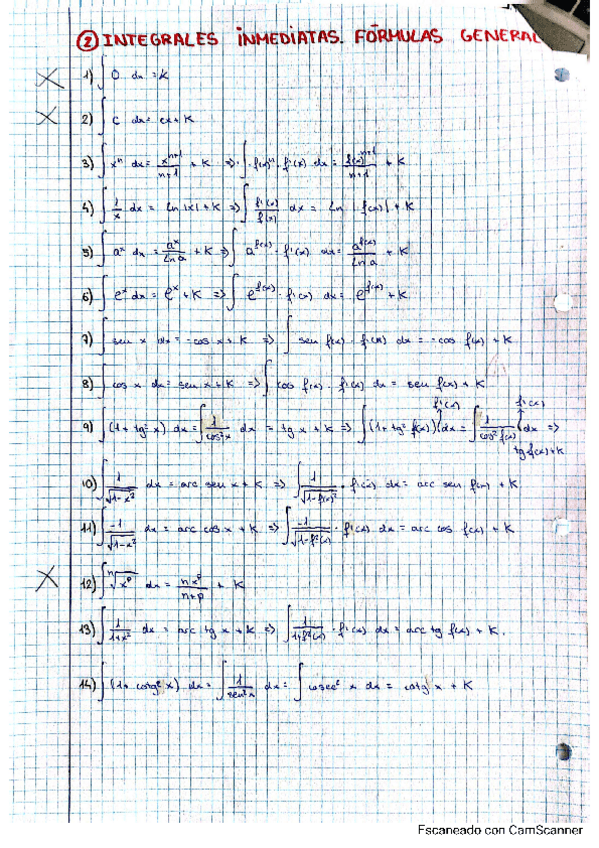 ② INTEGRALES INMEDIATAS. FÓRMULAS GENERAL
1) ∫ 0 dx = K
2) ∫ c dx = cx + K
3) ∫ xⁿ dx = xⁿ⁺¹/(n+1) + K => ∫ f(x)ⁿ · f'(x) dx = f(x)ⁿ⁺¹/(n+1) + K
4) ∫ 1/x dx = Ln |x| + K => ∫ f'(x)/f(x) dx = Ln |f(x)| + K
5) ∫ aˣ dx = aˣ/Ln a + K => ∫ a^f(x) · f'(x) dx = a^f(x)/Ln a + K
6) ∫ eˣ dx = eˣ + K => ∫ e^f(x) · f'(x) dx = e^f(x) + K
7) ∫ sen x dx = -cos x + K => ∫ sen f(x) · f'(x) dx = -cos f(x) + K
8) ∫ cos x dx = sen x + K => ∫ cos f(x) · f'(x) dx = sen f(x) + K
f'(x) f'(x)
9) ∫ (1 + tg² x) dx = ∫ 1/cos² x dx = tg x + K => ∫ (1 + tg² f(x)) dx = ∫ 1/cos² f(x) dx =>
tg f(x) + K
10) ∫ 1/√(1-x²) dx = arc sen x + K => ∫ 1/√(1-f(x)²) · f'(x) dx = arc sen f(x) + K
11) ∫ -1/√(1-x²) dx = arc cos x + K => ∫ -1/√(1-f²(x)) · f'(x) dx = arc cos f(x) + K
12) ∫ ⁿ√xᵖ dx = /(n+p) + K
13) ∫ 1/(1+x²) dx = arc tg x + K => ∫ 1/(1+f²(x)) · f'(x) dx = arc tg f(x) + K.
14) ∫ (1 + cotg² x) dx = ∫ 1/sen² x dx = ∫ cosec² x dx = cotg x + K
Escaneado con CamScanner